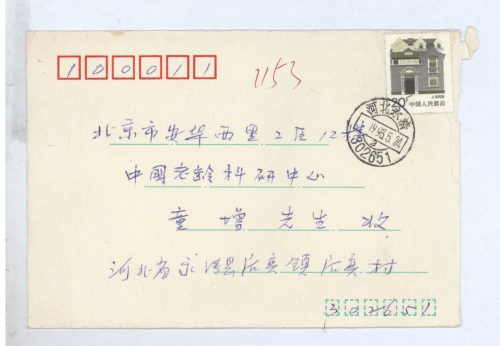 100011
1153
20分
上海民居
中国人民邮政
河北永清
302651
北京市安华西里2区12楼
中国老龄科研中心
童增先生收
河北省永清县后奕镇后奕村
302651